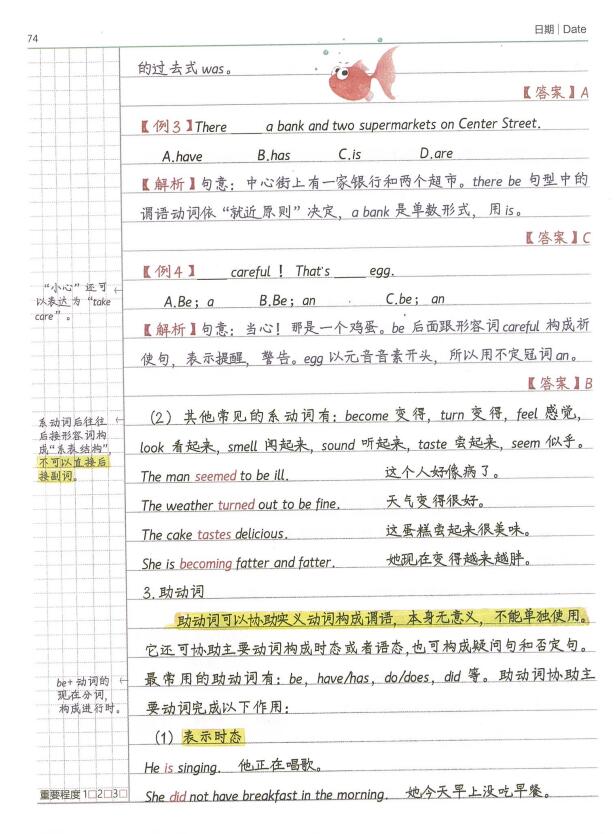 74
日期 | Date
的过去式 was。
【答案】A
【例3】There _____ a bank and two supermarkets on Center Street.
A.have B.has C.is D.are
【解析】句意：中心街上有一家银行和两个超市。there be 句型中的
谓语动词依“就近原则”决定，a bank 是单数形式，用is。
【答案】C
【例4】_____ careful！ That's _____ egg.
A.Be；a B.Be；an C.be；an
“小心”还可
以表达为“take
care”。
【解析】句意：当心！那是一个鸡蛋。be 后面跟形容词careful 构成祈
使句，表示提醒，警告。egg 以元音音素开头，所以用不定冠词an。
【答案】B
系动词后往往
后接形容词构
成“系表结构”，
不可以直接后
接副词。
（2）其他常见的系动词有：become 变得，turn 变得，feel 感觉，
look 看起来，smell 闻起来，sound 听起来，taste 尝起来，seem 似乎。
The man seemed to be ill. 这个人好像病了。
The weather turned out to be fine. 天气变得很好。
The cake tastes delicious. 这蛋糕尝起来很美味。
She is becoming fatter and fatter. 她现在变得越来越胖。
3. 助动词
助动词可以协助实义动词构成谓语，本身无意义，不能单独使用。
它还可协助主要动词构成时态或者语态，也可构成疑问句和否定句。
最常用的助动词有：be，have/has，do/does，did 等。助动词协助主
要动词完成以下作用：
be+动词的
现在分词，
构成进行时。
（1）表示时态
He is singing. 他正在唱歌。
She did not have breakfast in the morning. 她今天早上没吃早餐。
重要程度 1□2□3□